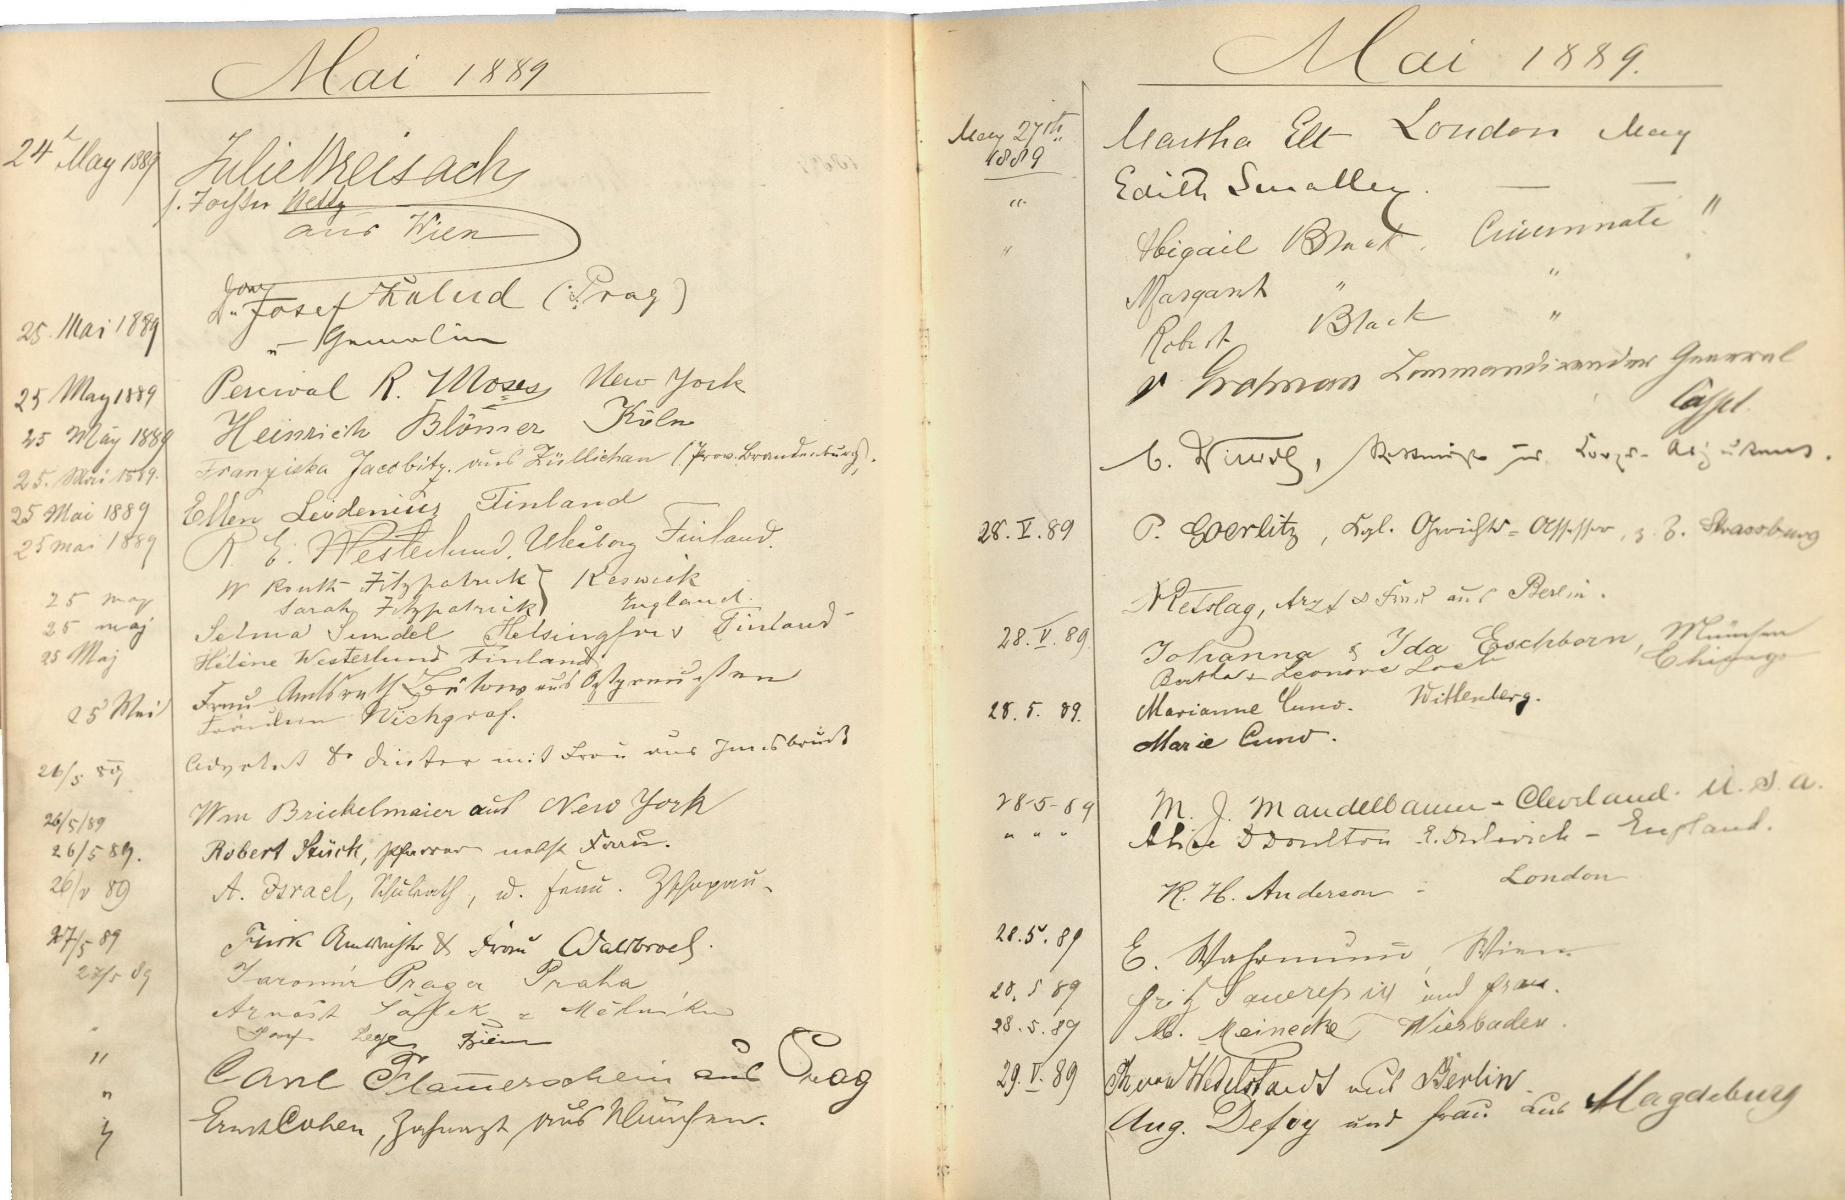 Mai 1889
24 May 1889 Julie Kreisach
Netty
aus Wien
Josef (Prag)
25. Mai 1889 Gemalin
25 May 1889 Percival R. Moses New York
25 May 1889 Heinrich Blömer Köln
25. Mai 1889. Franziska Jacobitz. aus Züllichau (Prov. Brandenburg).
25 Mai 1889 Ellen Leidenius Finland
25 mai 1889 R. E. Westerlund, Uleåborg Finland.
W Routh Fitzpatrick } Keswick
25 maj Sarah Fitzpatrick } England.
25 maj Selma Sundel Helsingfors Finland
25 Maj Hélène Westerlund Finland
25 Mai Frau Amtsrath aus Ostpreussen
Fräulein Wishgraf.
26/5 89 Advokat Dr mit Frau aus Innsbruck
26/5/89 Wm Brickelmaier aus New York
26/5 89. Robert Stück, Pfarrer nebst Frau.
26/V 89 A. Israel, Schulrath, u. Frau. Zschopau
27/5 89 Amtsrichter & Frau Waldbroel.
27/5 89 Jaromír Prager Praha
" Arnošt
" Carl Flamerschein aus Prag
" Ernst Cohen, Zahnarzt aus München.
Mai 1889.
May 27th 1889 Martha Elt London May
" Edith Smalley. — —
" Abigail Black. Cincinnati "
Margaret " "
Robert Black "
v Grolman Kommandirender General
Cassel.
28. V. 89 P. Goerlitz, Kgl. Gerichts-Assessor, z. Z. Strassburg
Retslag, Arzt & Frau aus Berlin.
28. V. 89. Johanna & Ida Eschborn, München
Bertha + Leonore Chicago
28. 5. 89. Marianne Cuno. Wittenberg.
Marie Cuno.
28-5-89 M. J. Mandelbaum - Cleveland. U. S. A.
" " " Alice D Doulton E. Dulwich - England.
K. H. Anderson - London
28. 5. 89 E. Wahrmund, Wien
28. 5 89 Fritz und Frau.
28. 5. 89 M. Meinecke Wiesbaden.
29. V. 89 von Wedelstaedt aus Berlin
Aug. Defoy und Frau aus Magdeburg